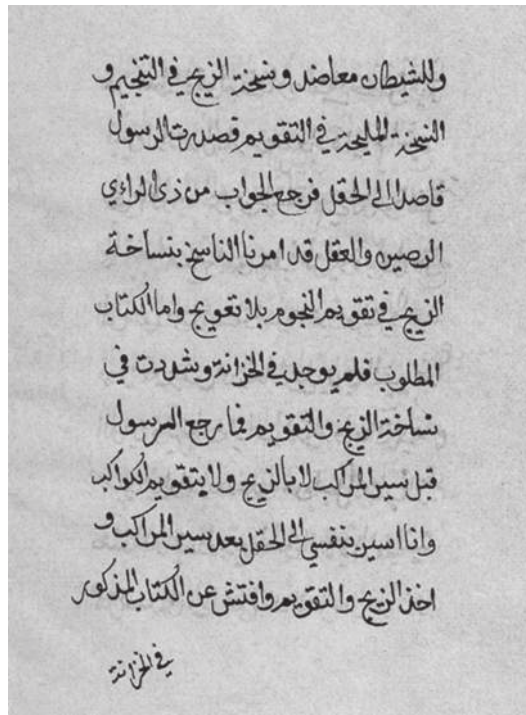 وللشيطان معاضد ونسخة الزيج في التنجيم و
النسخة المليحة في التقويم فصدرت الرسول
قاصدا الى الحقل فرجع الجواب من ذى الراءي
الرصين والعقل قد امرنا الناسخ بنساخة
الزيج في تقويم النجوم بلا تعويج واما الكتاب
المطلوب فلم يوجد في الخزانة وشددت في
نساخة الزيج والتقويم فما رجع المرسول
قبل سير المراكب لا بالزيج ولا بتقويم الكواكب
وانا اسير بنفسي الى الحقل بعد سير المراكب و
اخذ الزيج والتقويم وافتش عن الكتاب المذكور
في الخزانة